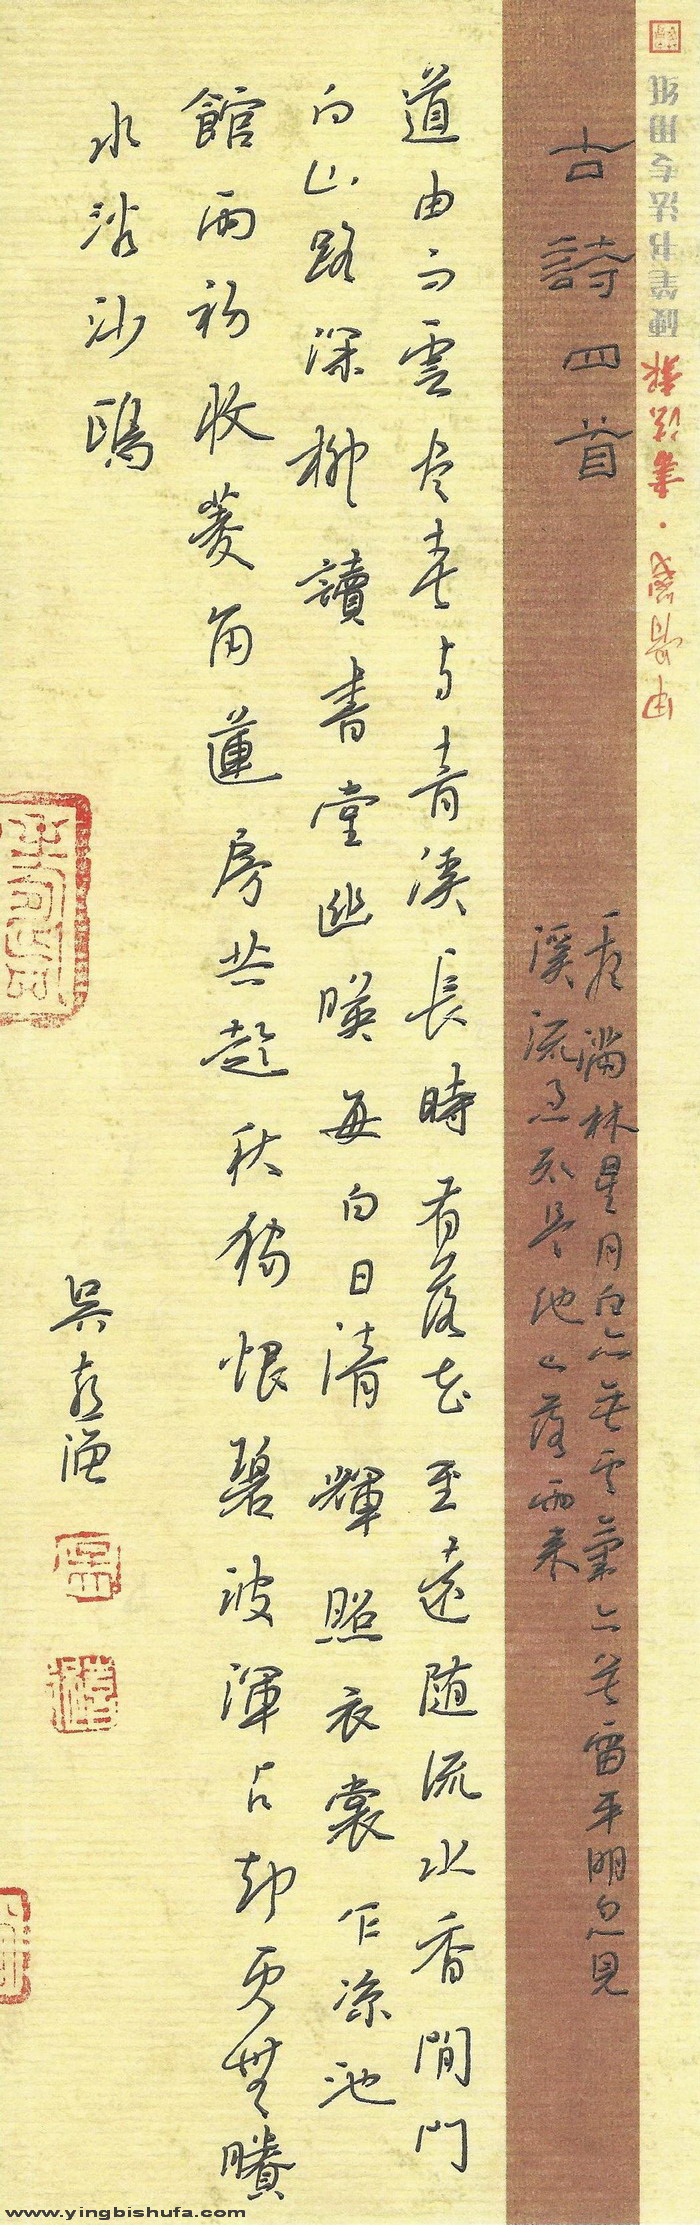 書法報
硬笔书法专用纸
古詩四首
一夜滿林星月白亦無雲氣亦無雷平明忽見
溪流急知是他山落雨來
道由白雲盡春與青溪長時有落花至遠隨流水香閒門
向山路深柳讀書堂幽暎每白日清輝照衣裳乍涼池
館雨初收菱角蓮房共趁秋獨恨碧波渾占卻更無賸
水浴沙鷗
吳
www.yingbishufa.com